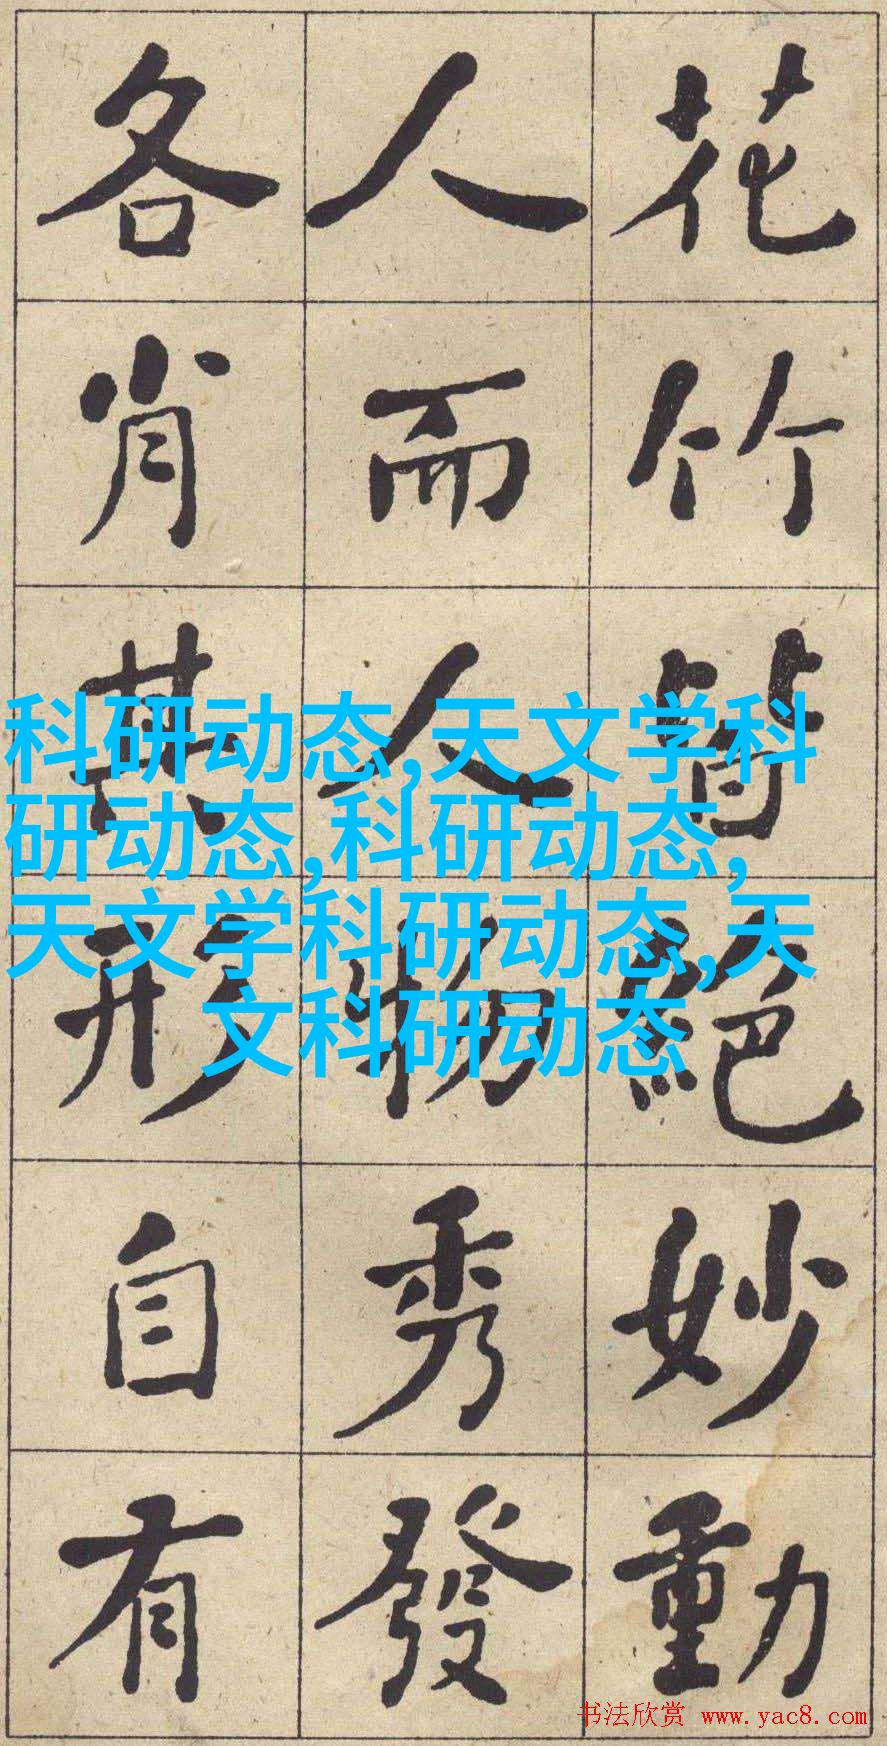 花竹皆絕妙動
人而人物秀發
各肖其形自有
科研动态,天文学科
研动态,科研动态,
天文学科研动态,天
文科研动态
书法欣赏 www.yac8.com